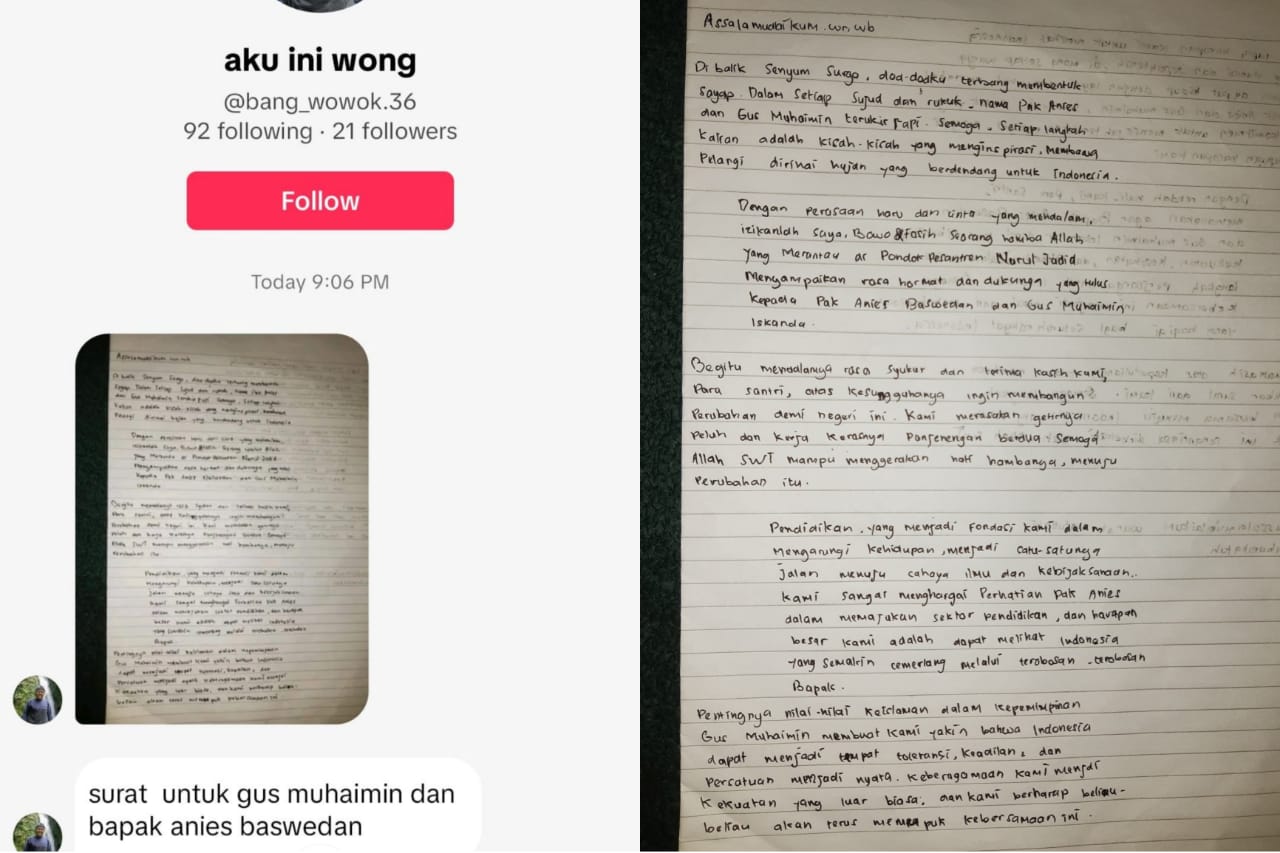 aku ini wong
@bang_wowok.36
92 following · 21 followers
Follow
Today 9:06 PM
surat untuk gus muhaimin dan
bapak anies baswedan
Assalamualaikum.wr,wb
Di balik Senyum Surgo, doa-doaku terbang membentuk
Sayap. Dalam Setiap Sujud dan rukuk, nama Pak Anies
dan Gus Muhaimin terukir rapi. Semoga, Setiap langkah
Kalian adalah kisah-kisah yang menginspirasi, Membawa
Pelangi dirinai hujan yang berdendang untuk Indonesia.
Dengan perasaan haru dan cinta yang mendalam,
izikanlah saya, Bowo & fasih Seorang hamba Allah
Yang Merantau di Pondok Pesantren Nurul Jadid
Menyampaikan rasa hormat dan dukunga yang tulus
Kepada Pak Anies Baswedan dan Gus Muhaimin
Iskanda.
Begitu mendalanya rasa syukur dan terima kasih kami,
Para santri, atas kesungguhanya ingin membangun
Perubahan demi negeri ini. Kami merasakan getirnya
Peluh dan kerja kerasnya Panjenengan berdua. Semoga
Allah SWT mampu menggerakan hati hambanya, menuju
Perubahan itu.
Pendidikan, yang menjadi fondasi kami dalam
Mengarungi kehidupan, menjadi satu-satunya
jalan menuju cahaya ilmu dan kebijaksanaan..
Kami sangat menghargai Perhatian Pak Anies
dalam memajukan sektor pendidikan, dan harapan
besar kami adalah dapat melihat Indonesia
Yang Semakin cemerlang melalui terobosan-terobosan
Bapak.
Pentingnya nilai-nilai keislaman dalam kepemimpinan
Gus Muhaimin membuat kami yakin bahwa Indonesia
dapat menjadi tempat toleransi, keadilan, dan
Persatuan menjadi nyata. Keberagamaan kami menjadi
Kekuatan yang luar biasa, dan kami berharap beliau-
beliau akan terus memupuk kebersamaan ini.